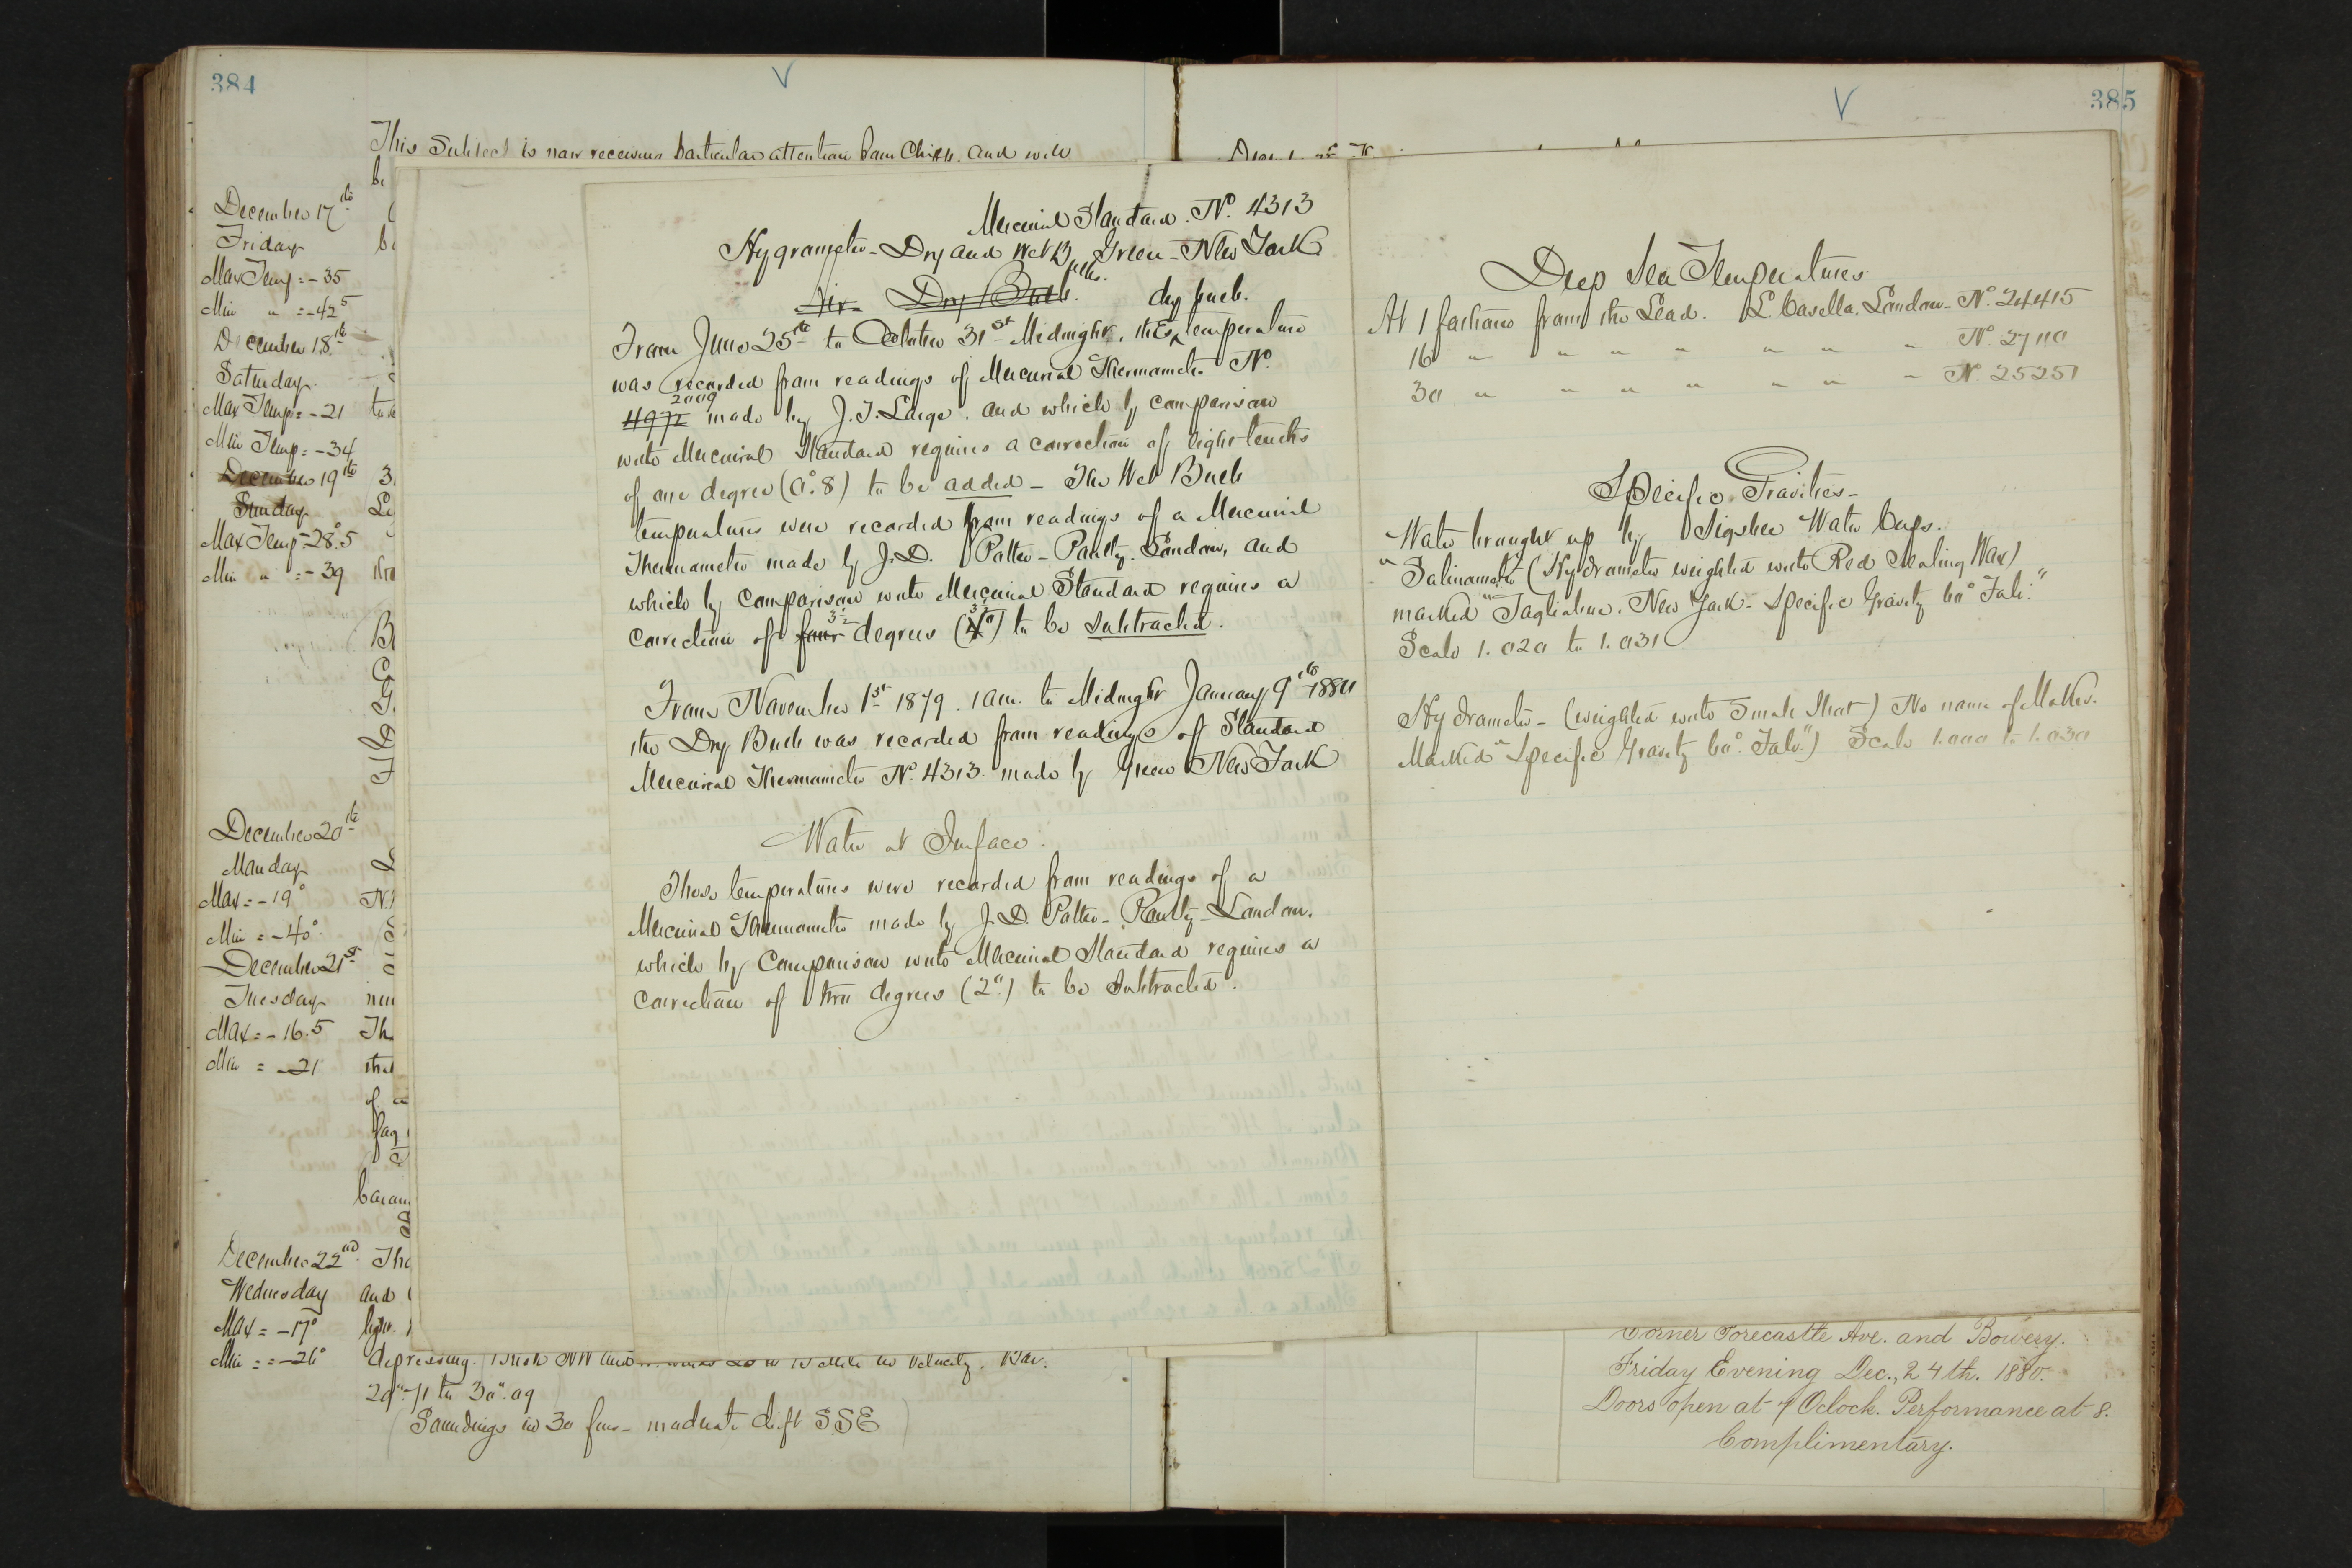 384
V
This Subject is now receiving particular attention from Chipp. and will
be
December 17th
Friday
Max Temp = -35
Min " = -42⁵
December 18th
Saturday
Max Temp = -21
Min Temp = -34
December 19th
Sunday
Max Temp -28°.5
Min " = -39
December 20th
Monday
Max = -19°
Min = -40°
December 21st
Tuesday
Max = -16.5
Min = -21
December 22nd
Wednesday
Max = -17°
Min = -26°
The
and
depressing. Brisk NW and
miles in Velocity. Bar.
29".71 to 30".09
(Soundings in 30 fms - moderate drift SSE)
Mercurial Standard. No. 4313
Hygrometer - Dry and Wet Bulbs. Green - New York
Air Dry Bulb. dry bulb.
From June 25th to October 31st Midnight, the temperature
was recorded from readings of Mercurial Thermometer No.
2009
4972 made by J.T. Large. and which by comparison
with Mercurial Standard requires a correction of eight tenths
of one degree (0°.8) to be added - The Wet Bulb
temperatures were recorded from readings of a Mercurial
Thermometer made by J.D. Potter - Poultry. London, and
which by comparison with Mercurial Standard requires a
correction of four degrees (4°) to be subtracted.
From November 1st 1879. 1 am. to Midnight January 9th 1880
the Dry Bulb was recorded from readings of Standard
Mercurial Thermometer No. 4313 made by Green New York
Water at Surface.
These temperatures were recorded from readings of a
Mercurial Thermometer made by J.D. Potter - Poultry - London.
which by Comparison with Mercurial Standard requires a
correction of two degrees (2°) to be subtracted.
385
V
Deep Sea Temperatures
At 1 fathom from the Lead. L. Casella. London - No. 24415
16 " " " " " " " " No. 27110
30 " " " " " " " " No. 25251
Specific Gravities -
Water brought up by Sigsbee Water Cups.
"Salinometer (Hydrometer weighted with Red Sealing Wax)
marked "Tagliabue. New York - Specific Gravity 60° Fah."
Scale 1.020 to 1.031
Hydrometer - (weighted with small Shot) No name of Maker.
Marked "Specific Gravity 60°. Fah.") Scale 1.000 to 1.030
Corner Forecastle Ave. and Bowery.
Friday Evening Dec., 24th. 1880.
Doors open at 7 Oclock. Performance at 8.
Complimentary.